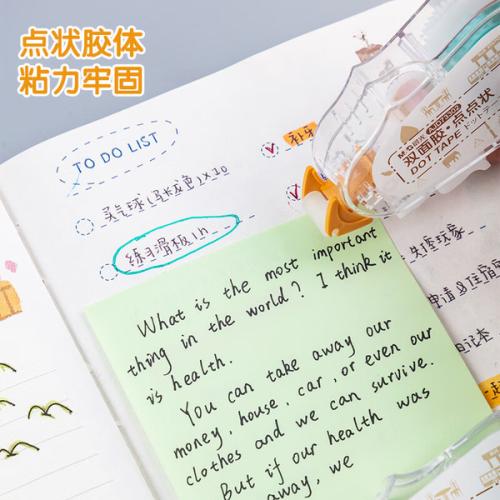 点状胶体
粘力牢固
TO DO LIST
买气球(马卡龙色)×20
练习滑板1h
补牙
M&G 晨光 AJD73202
双面胶·点点状
DOT TAPE ドットテープ
What is the most important
thing in the world? I think it
is health.
You can take away our
money, house, car, or even our
clothes and we can survive.
But if our health was
away, we